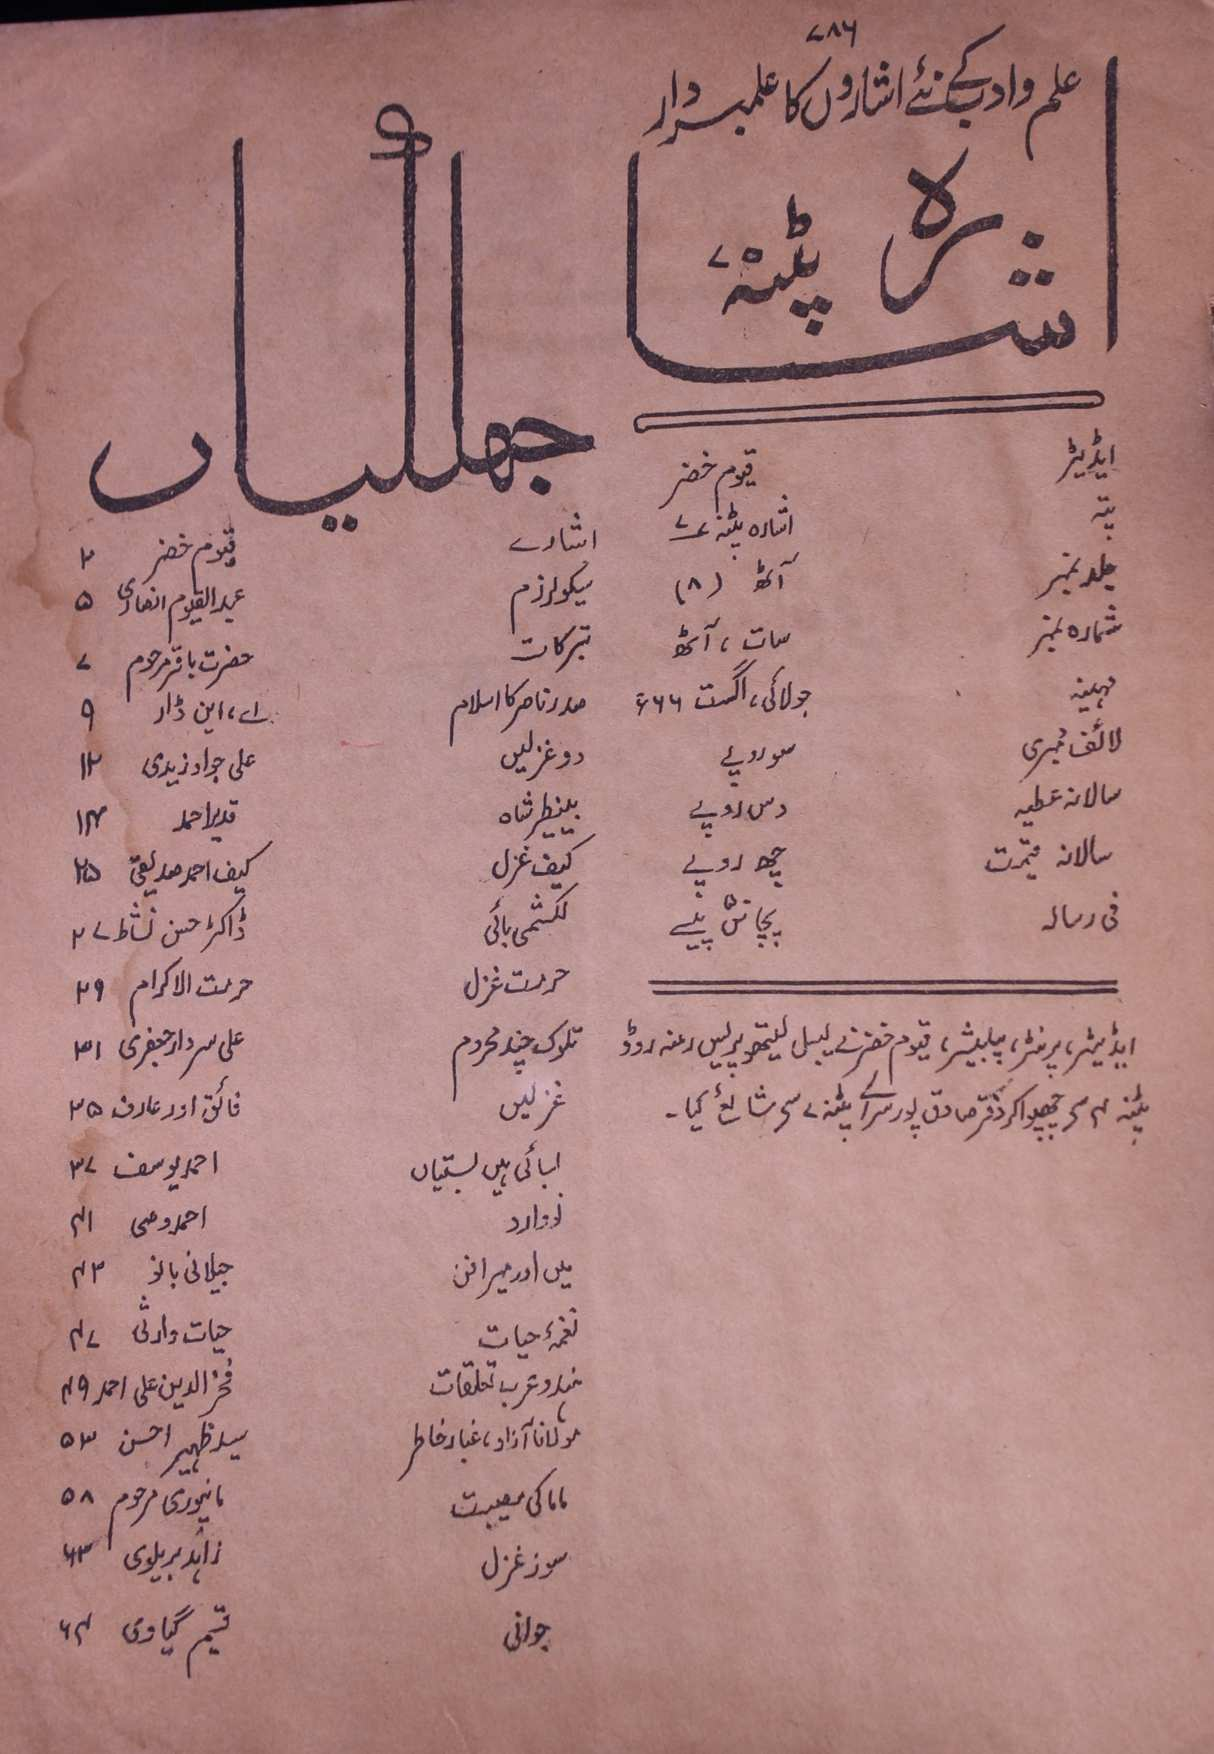 ۷۸۶
علم و ادب کے نئے اشاروں کا علمبردار
اشارہ پٹنہ ۷
ایڈیٹر قیوم خضر
پتہ اشارہ پٹنہ ۷
جلد نمبر آٹھ (۸)
شمارہ نمبر سات، آٹھ
مہینہ جولائی، اگست ۶۶ء
لائف ممبری سو روپے
سالانہ عطیہ دس روپے
سالانہ قیمت چھ روپے
فی رسالہ پچاس پیسے
ایڈیٹر، پرنٹر، پبلیشر، قیوم خضر نے لیبل لیتھو پریس رمنہ روڈ
پٹنہ ۴ سے چھپوا کر دفتر صادق پور سرائے پٹنہ ۷ سے شائع کیا۔
جھلکیاں
اشارے قیوم خضر ۲
سیکولرزم عبدالقیوم انصاری ۵
تبرکات حضرت باقر مرحوم ۷
صدر ناصر کا اسلام اے، این ڈار ۹
دو غزلیں علی جواد زیدی ۱۲
بینظیر شاہ قدیر احمد ۱۴
کیف غزل کیف احمد صدیقی ۲۵
لکشمی بائی ڈاکٹر حسن نشاط ۲۷
حرمت غزل حرمت الاکرام ۲۹
تلوک چند محروم علی سردار جعفری ۳۱
غزلیں فائق اور عارف ۳۵
بسائی ہیں بستیاں احمد یوسف ۳۷
نووارد احمد وصی ۴۱
میں اور میرا فن جیلانی بانو ۴۳
نغمۂ حیات حیات وارثی ۴۷
ہند و عرب تعلقات فخرالدین علی احمد ۴۹
مولانا آزاد، غبار خاطر سید ظہیر احسن ۵۳
ماما کی مصیبت مانپوری مرحوم ۵۸
سوز غزل زاہد بریلوی ۶۳
جوانی قسیم گیاوی ۶۴